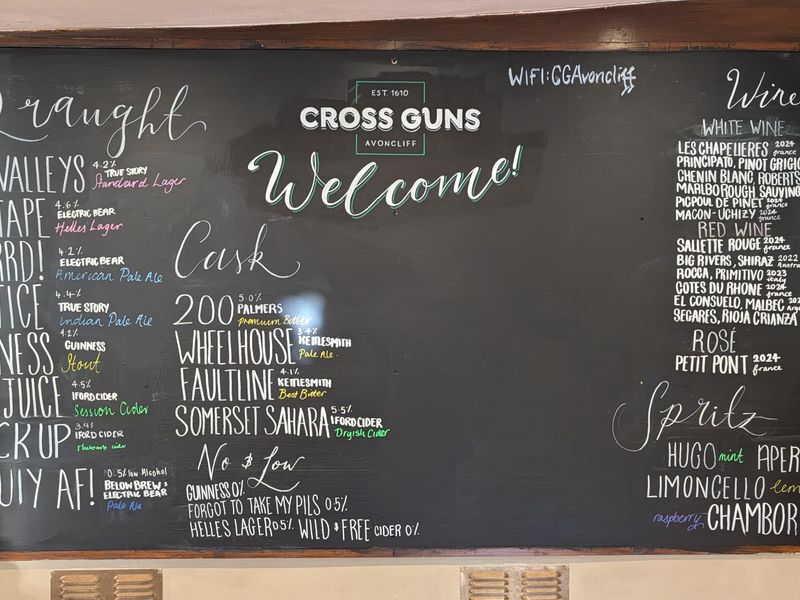 Draught
VALLEYS 4.2% TRUE STORY Standard Lager
TAPE 4.6% ELECTRIC BEAR Helles Lager
RD! 4.2% ELECTRIC BEAR American Pale Ale
ICE 4.4% TRUE STORY Indian Pale Ale
NESS 4.2% GUINNESS Stout
JUICE 4.5% IFORD CIDER Session Cider
CK UP 3.4% IFORD CIDER rhubarb cider
AF! 0.5% low Alcohol BELOW BREW & ELECTRIC BEAR Pale Ale
EST. 1610
CROSS GUNS
AVONCLIFF
Welcome!
WIFI: CGAvoncliff
Cask
200 5.0% PALMERS premium Bitter
WHEELHOUSE 3.4% KETTLESMITH Pale Ale
FAULTLINE 4.1% KETTLESMITH Best Bitter
SOMERSET SAHARA 5.5% IFORD CIDER Dryish Cider
No & Low
GUINNESS 0%
FORGOT TO TAKE MY PILS 0.5%
HELLES LAGER 0.5% WILD & FREE CIDER 0%
Wine
WHITE WINE
LES CHAPELIERES 2024 france
PRINCIPATO, PINOT GRIGIO
CHENIN BLANC, ROBERTS
MARLBOROUGH SAUVING
PICPOUL DE PINET 2024 france
MACON-UCHIZY 2024 france
RED WINE
SALLETTE ROUGE 2024 france
BIG RIVERS, SHIRAZ 2022
ROCCA, PRIMITIVO 2023 italy
COTES DU RHONE 2024 france
EL CONSUELO, MALBEC
SEGARES, RIOJA CRIANZA
ROSÉ
PETIT PONT 2024 france
Spritz
HUGO mint APER
LIMONCELLO lem
raspberry CHAMBOR